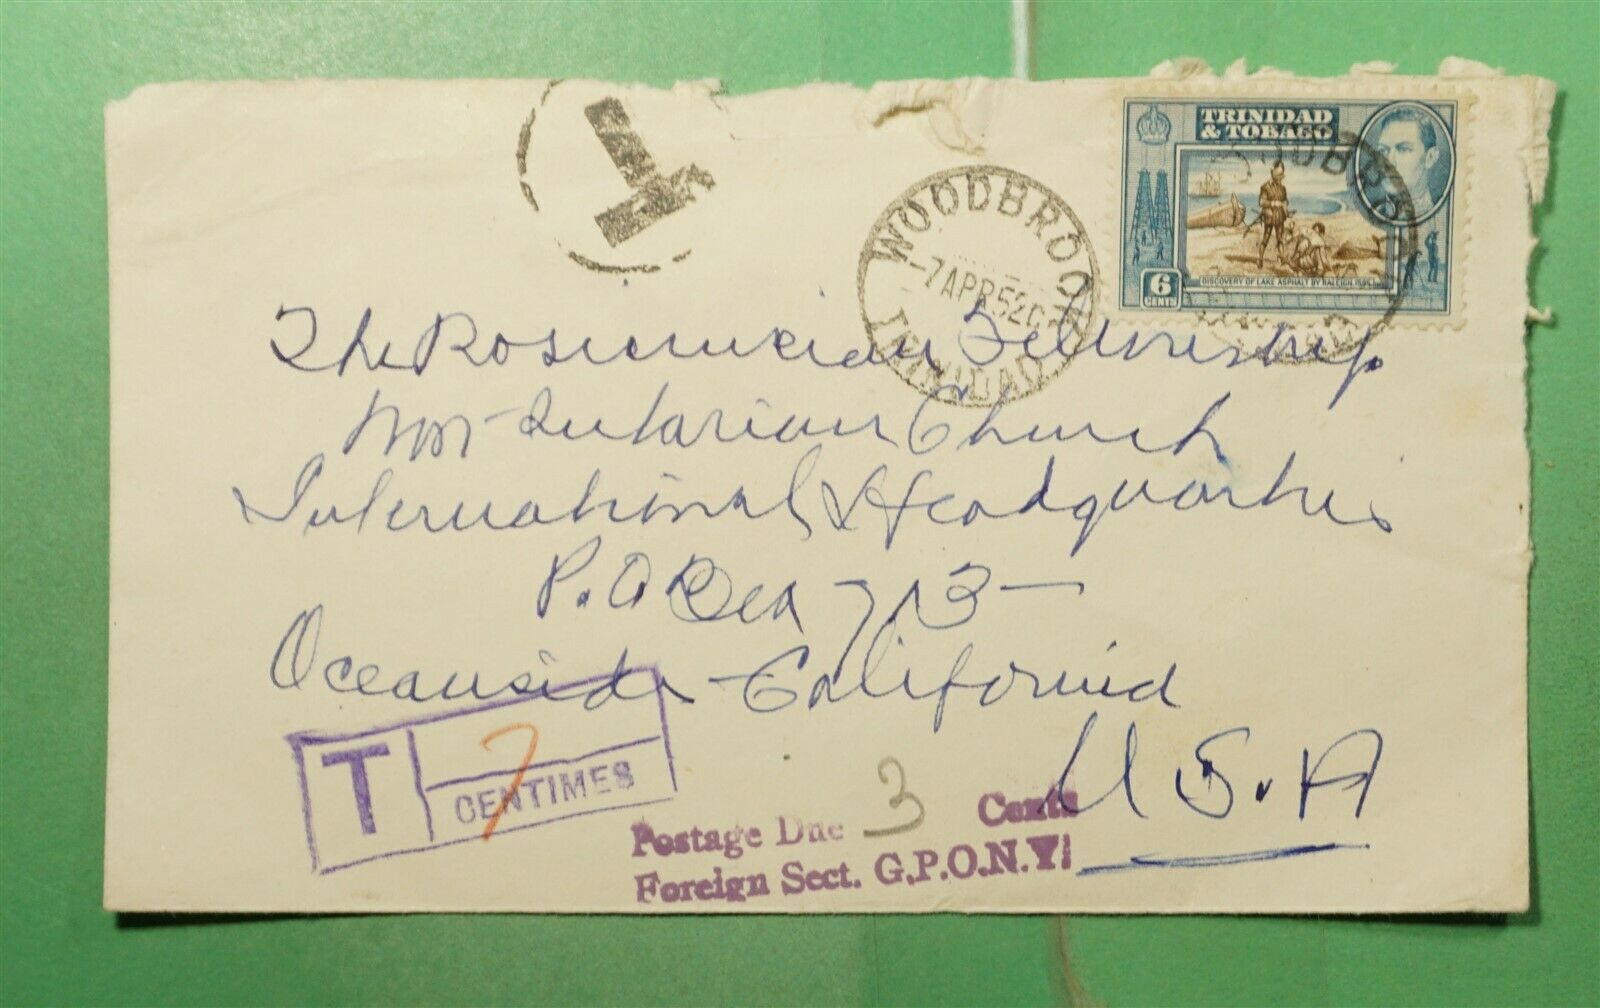 T
WOODBROOK
-7 APR 52
TRINIDAD
TRINIDAD
& TOBAGO
6
CENTS
DISCOVERY OF LAKE ASPHALT BY RALEIGH, 1595.
WOODBR
The Rosicrucian Fellowship
Non-Sectarian Church
International Headquarters
P.O. Box 713 —
Oceanside - California
U.S.A
T
7
CENTIMES
Postage Due 3 Cents
Foreign Sect. G.P.O.N.Y.